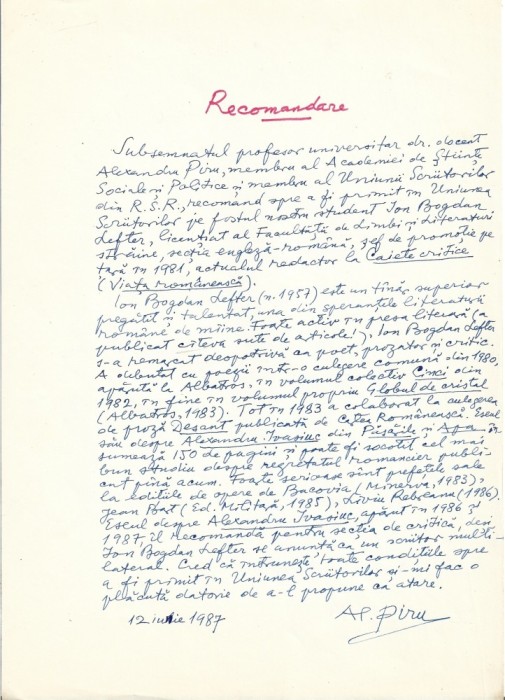 Recomandare
Subsemnatul profesor universitar dr. docent
Alexandru Piru, membru al Academiei de Științe
Sociale și Politice și membru al Uniunii Scriitorilor
din R.S.R., recomand spre a fi primit în Uniunea
Scriitorilor pe fostul nostru student Ion Bogdan
Lefter, licențiat al Facultății de Limbi și Literaturi
străine, secția engleză-română, șef de promoție pe
țară în 1981, actualul redactor la Caiete critice
(Viața românească).
Ion Bogdan Lefter (n. 1957) este un tînăr superior
pregătit și talentat, una din speranțele literaturii
române de mîine. Foate activ în presa literară (a
publicat cîteva sute de articole!), Ion Bogdan Lefter
s-a remarcat deopotrivă ca poet, prozator și critic.
A debutat cu poezii într-o culegere comună din 1980,
apărută la Albatros, în volumul colectiv Cinci din
1982, în fine în volumul propriu Globul de cristal
(Albatros, 1983). Tot în 1983 a colaborat la culegerea
de proză Desant publicată de Cartea Românească. Eseul
său despre Alexandru Ivasiuc din Păsările și Apa în-
sumează 150 de pagini și poate fi socotit cel mai
bun studiu despre regretatul romancier publi-
cat pînă acum. Foate serioase sînt prefețele sale
la edițiile de opere de Bacovia (Minerva, 1983),
Jean Bart (Ed. Militară, 1985), Liviu Rebreanu (1986).
Eseul despre Alexandru Ivasiuc, apărut în 1986 și
1987 îl recomandă pentru secția de critică, deși
Ion Bogdan Lefter se anunță ca un scriitor multi-
lateral. Cred că întrunește toate condițiile spre
a fi primit în Uniunea Scriitorilor și-mi fac o
plăcută datorie de a-l propune ca atare.
12 iunie 1987 Al. Piru